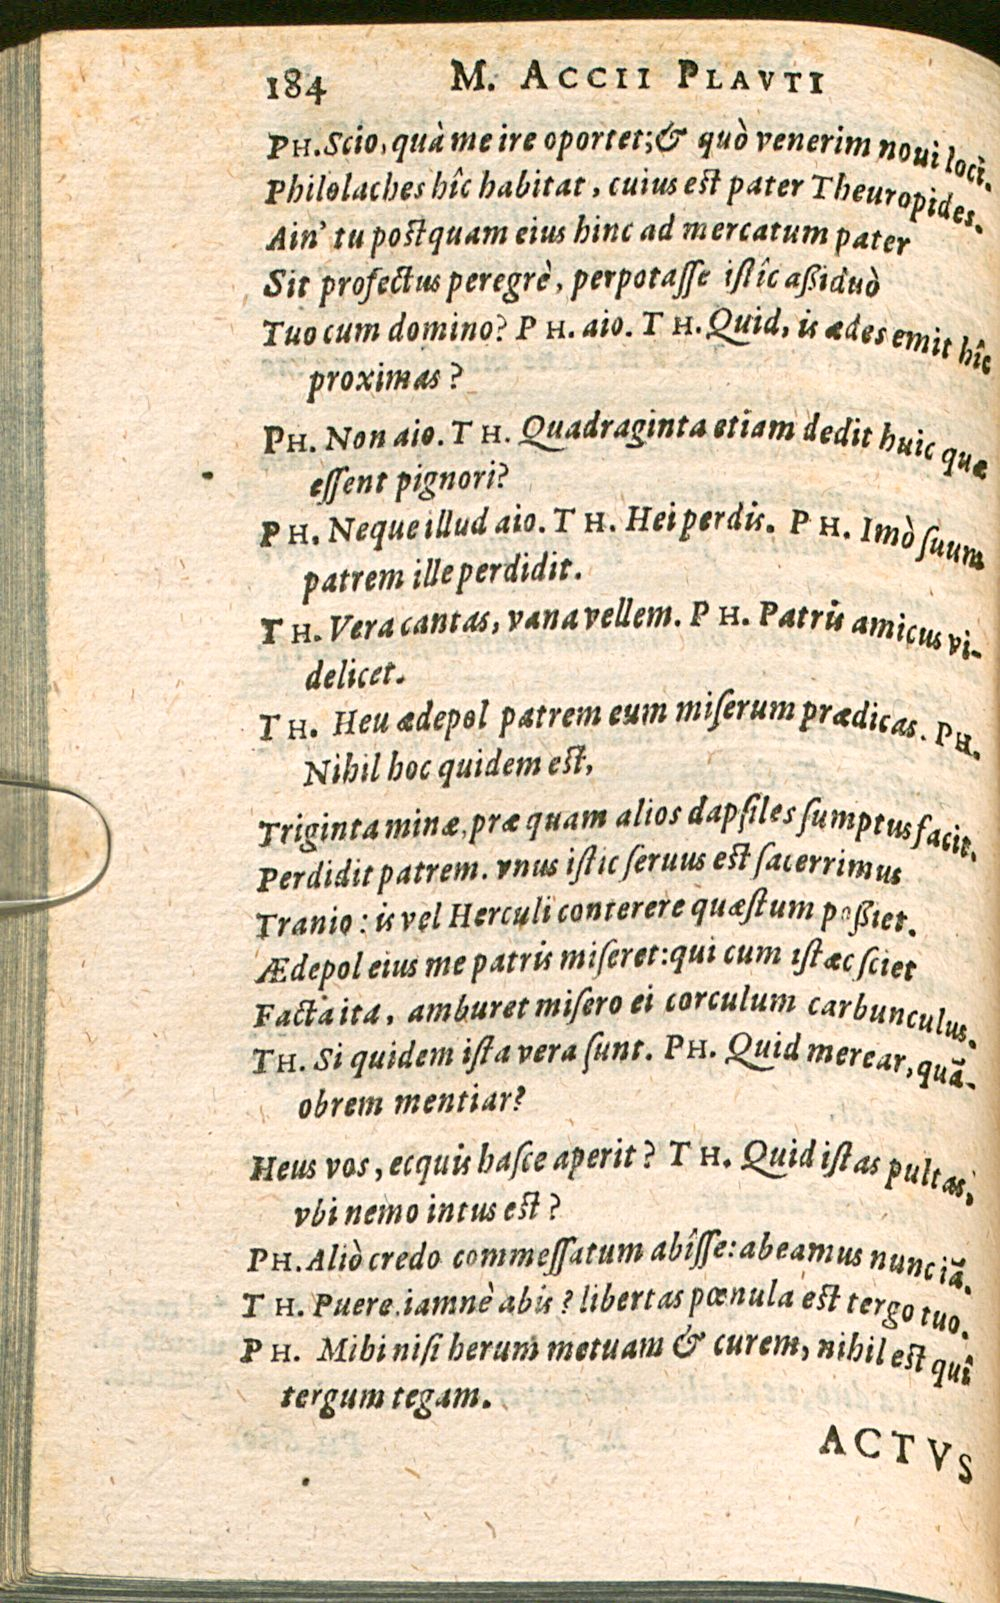 184 M. ACCII PLAVTI
PH. Scio, quà me ire oportet; & quò venerim noui locū.
Philolaches hîc habitat, cuius est pater Theuropides.
Ain' tu postquam eius hinc ad mercatum pater
Sit profectus peregrè, perpotaſſe iſtîc aßiduò
Tuo cum domino? PH. aio. TH. Quid, is ædes emit hîc
proximas?
PH. Non aio. TH. Quadraginta etiam dedit huic quæ
eſſent pignori?
PH. Neque illud aio. TH. Hei perdis. PH. Imò ſuum
patrem ille perdidit.
TH. Vera cantas, vana vellem. PH. Patris amicus vi-
delicet.
TH. Heu ædepol patrem eum miſerum prædicas. PH.
Nihil hoc quidem est,
Triginta minæ, præ quam alios dapſiles ſumptus facit.
Perdidit patrem. vnus iſtic ſeruus est ſacerrimus
Tranio: is vel Herculi conterere quæſtum poßiet.
Ædepol eius me patris miſeret: qui cum iſtæc ſciet
Facta ita, amburet miſero ei corculum carbunculus.
TH. Si quidem iſta vera ſunt. PH. Quid merear, quā-
obrem mentiar?
Heus vos, ecquis haſce aperit? TH. Quid iſtas pultas,
vbi nemo intus est?
PH. Aliò credo commeſſatum abîſſe: abeamus nunc iā.
TH. Puere, iamnè abis? libertas pœnula est tergo tuo.
PH. Mihi niſi herum metuam & curem, nihil est quî
tergum tegam.
ACTVS